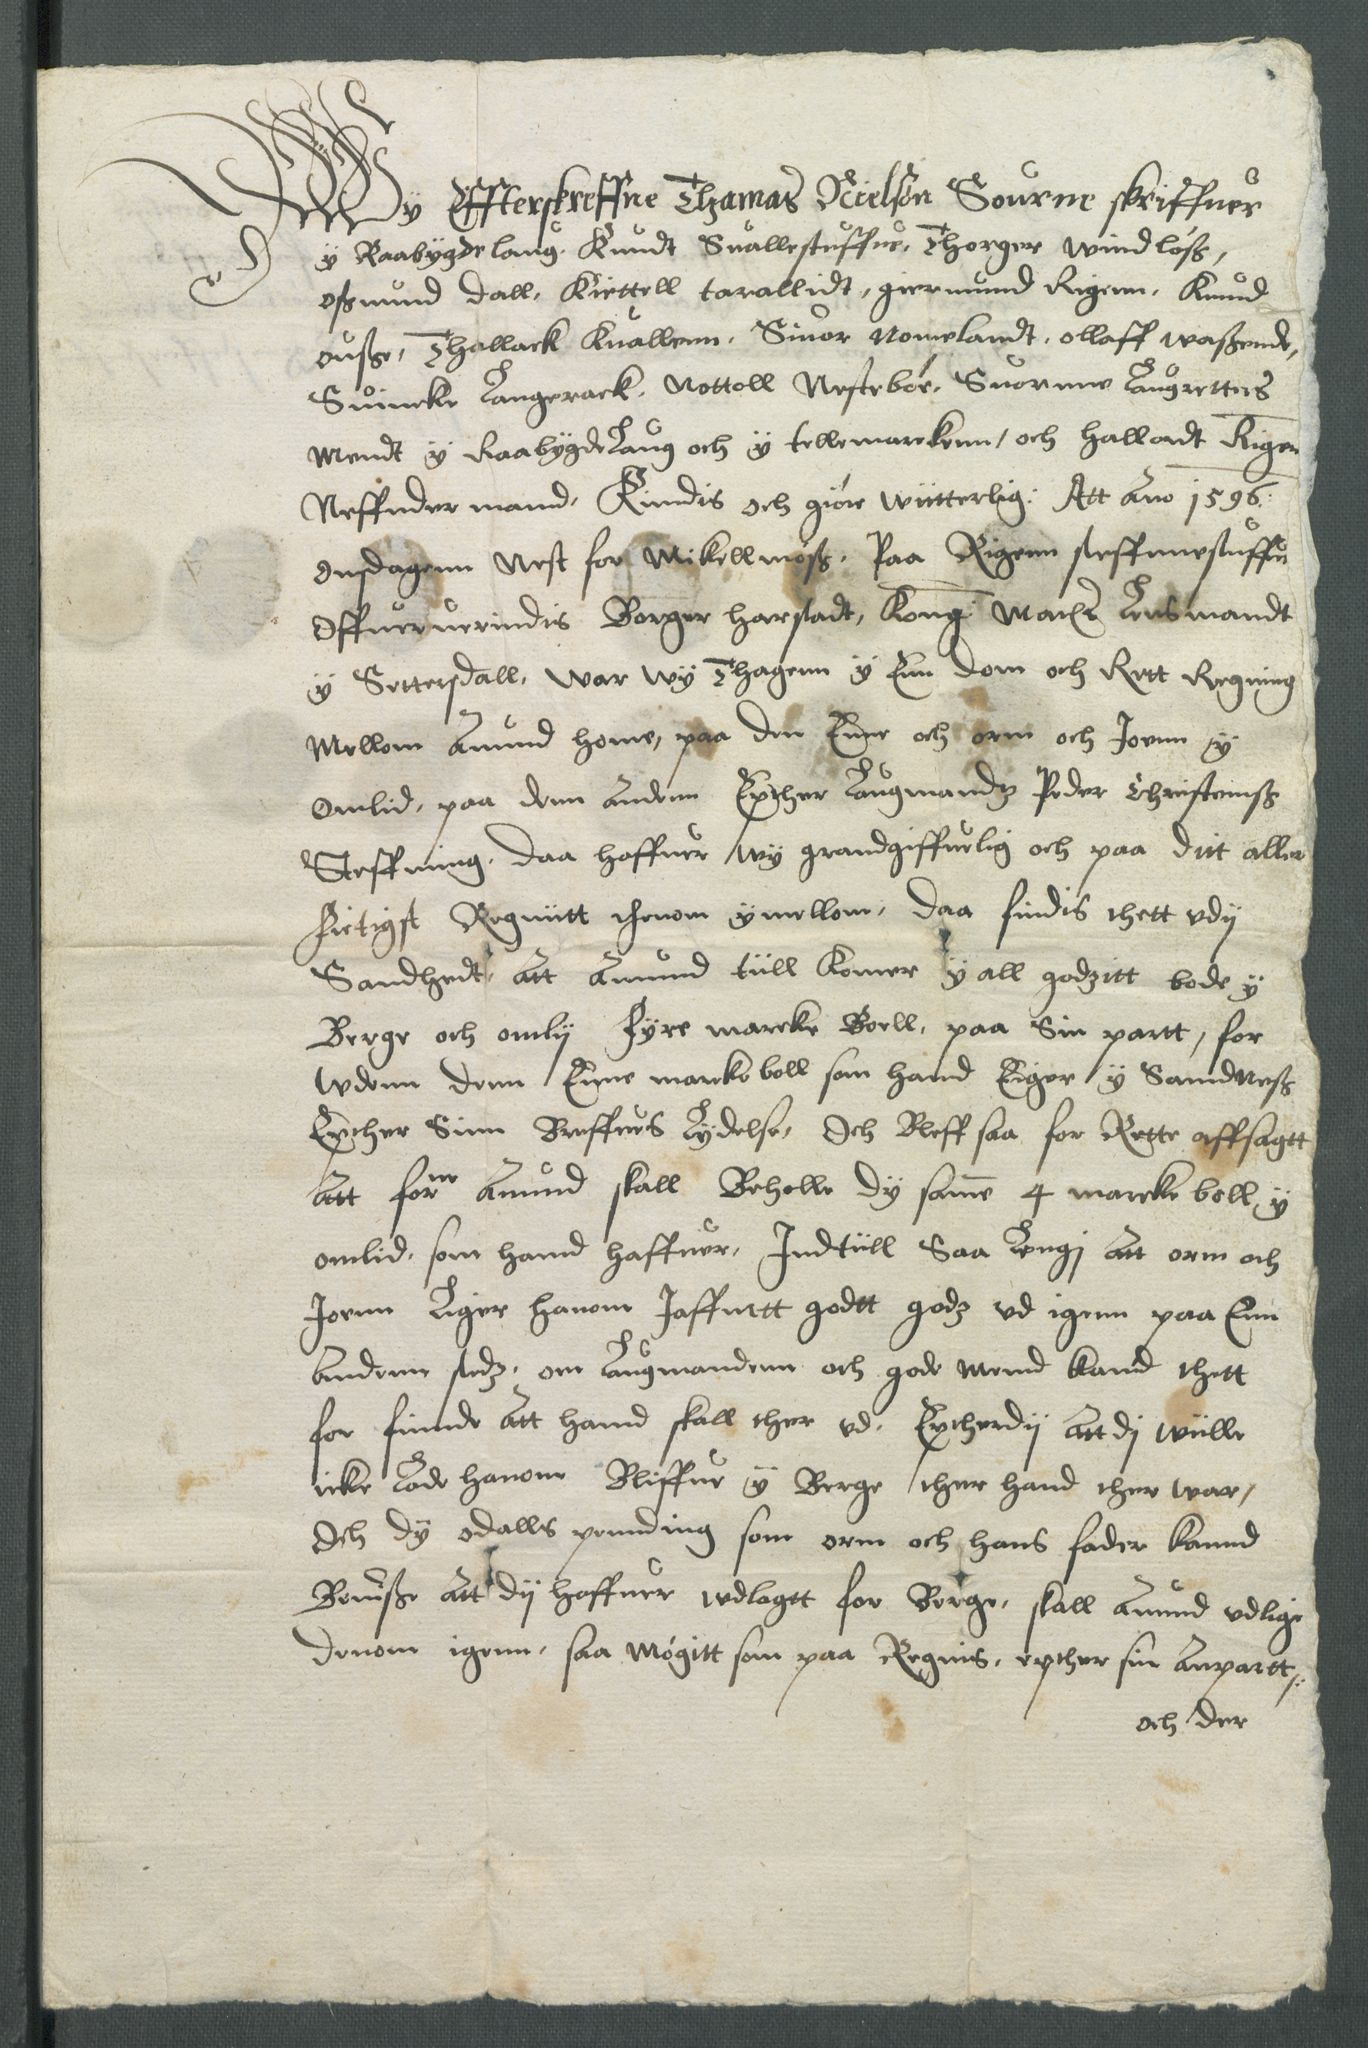 Wy Effterskreffne Thamas Nielsøn Sourne skriffuer
ÿ Raabygdelaug. Knudt Suallestuffue. Thorger windløß,
oßmund dall. Kiettell tarallidt, giermund Rigenn. Knud
ouße, Thallack Kuallenn. Siuor Nomelandt. ollaff waßende,
Suincke Langerack. Nottoll Nestebøe. Suorenne Laugrettes
Mendt ÿ RaabygdeLaug och ÿ tellemarckenn, och Halluordt Rigen
Neffnder mand, Kiendis och giøre wiitterlig: Att Ano 1596:
onsdagenn Nest for Mikellmøß. Paa Rigenn steffnnestuffue
Offueruerindis Borger harstadt, Kong: May: Lensmandt
ÿ Settersdall, war wÿ Thagenn ÿ Enn dom och Rett Regning
Mellom Amund home, paa den Ene och orm och Jorenn ÿ
omlid, paa denn Andenn Epther Laugmandz Peder Christenß
Steffning. daa haffuer wÿ grandgiffuelig och paa ditt aller
flitigst Regniitt thenom ÿmellom, daa findis thett vdÿ
Sandhedt, Att Amund tiill Komer ÿ all godzitt bode ÿ
Berge och omlÿ fÿre marcke Boell, paa Sin partt, for
wdenn denn Enne marckeboll som hand Eiger ÿ Sanndneß
Epther Sinn Breffues Lÿdelse, Och Bleff saa for Rette affsagtt
Att forne Amund skall Beholle dÿ same 4 marcke boll ÿ
omlid, som hannd haffuer, Indtiill Saa Lengj Att orm och
Jorenn Liger hanom Jaffnett godtt godz vd igenn paa Enn
Andenn stedz, om Laugmandenn och gode mend kand thett
for finnde Att hannd skall ther vd. Eptherdÿ Att dj wiille
icke Lade hanom Bliffue ÿ Berge ther hand ther war,
Och dÿ odalls pennding som orm och hans fader kannd
Beuiße Att dÿ haffuer wdlagtt for Berge, skall Amund vdlige
denom igenn, saa møgitt som paa Regnis, epther sin Anpartt,:
och der